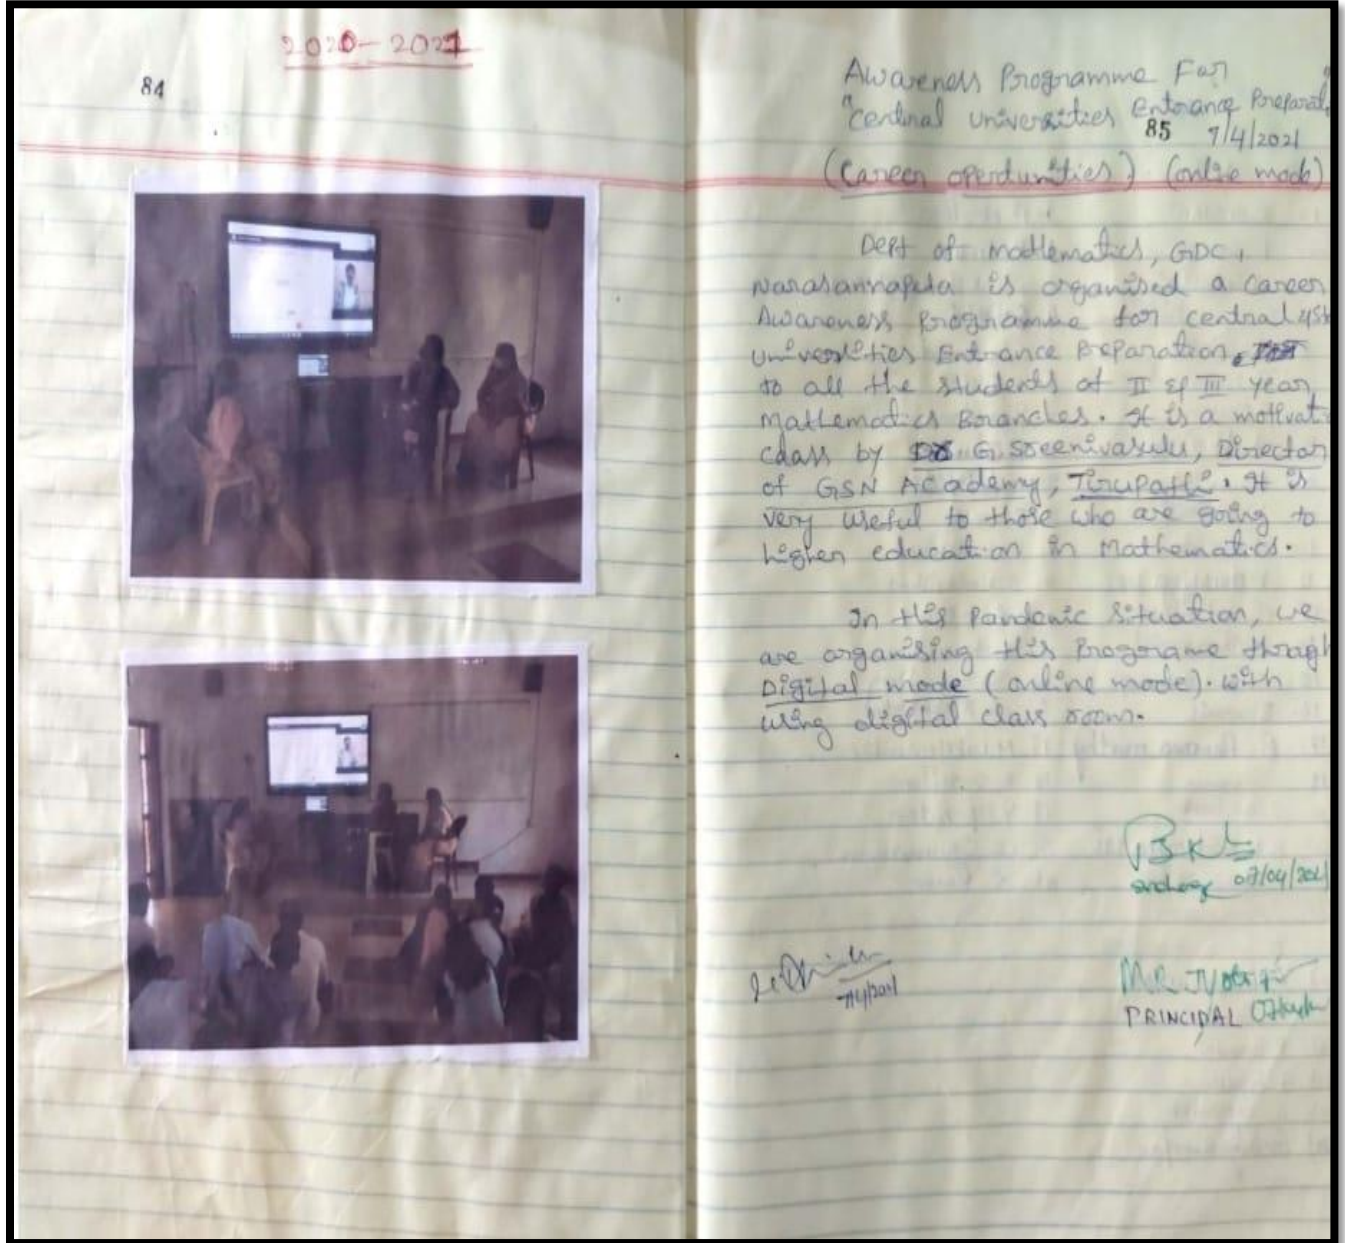 2020-2021
84
Awareness Programme For
"Central Universities Entrance Preparat
85 7/4/2021
(Career operdunities) (online mode)
Dept of mathematics, GDC,
Narasannapeta is organised a career
Awareness Programme for central
Universities Entrance Preparation
to all the students of II & III year
Mathematics Branches. It is a motivat
class by G. Sreenivasulu, Director
of GSN Academy, Tirupathi. It is
very useful to those who are going to
higher education in Mathematics.
In this Pandemic Situation, we
are organising this Programe through
Digital mode (online mode). with
using digital class room.
07/04/2021
7/4/2021
PRINCIPAL